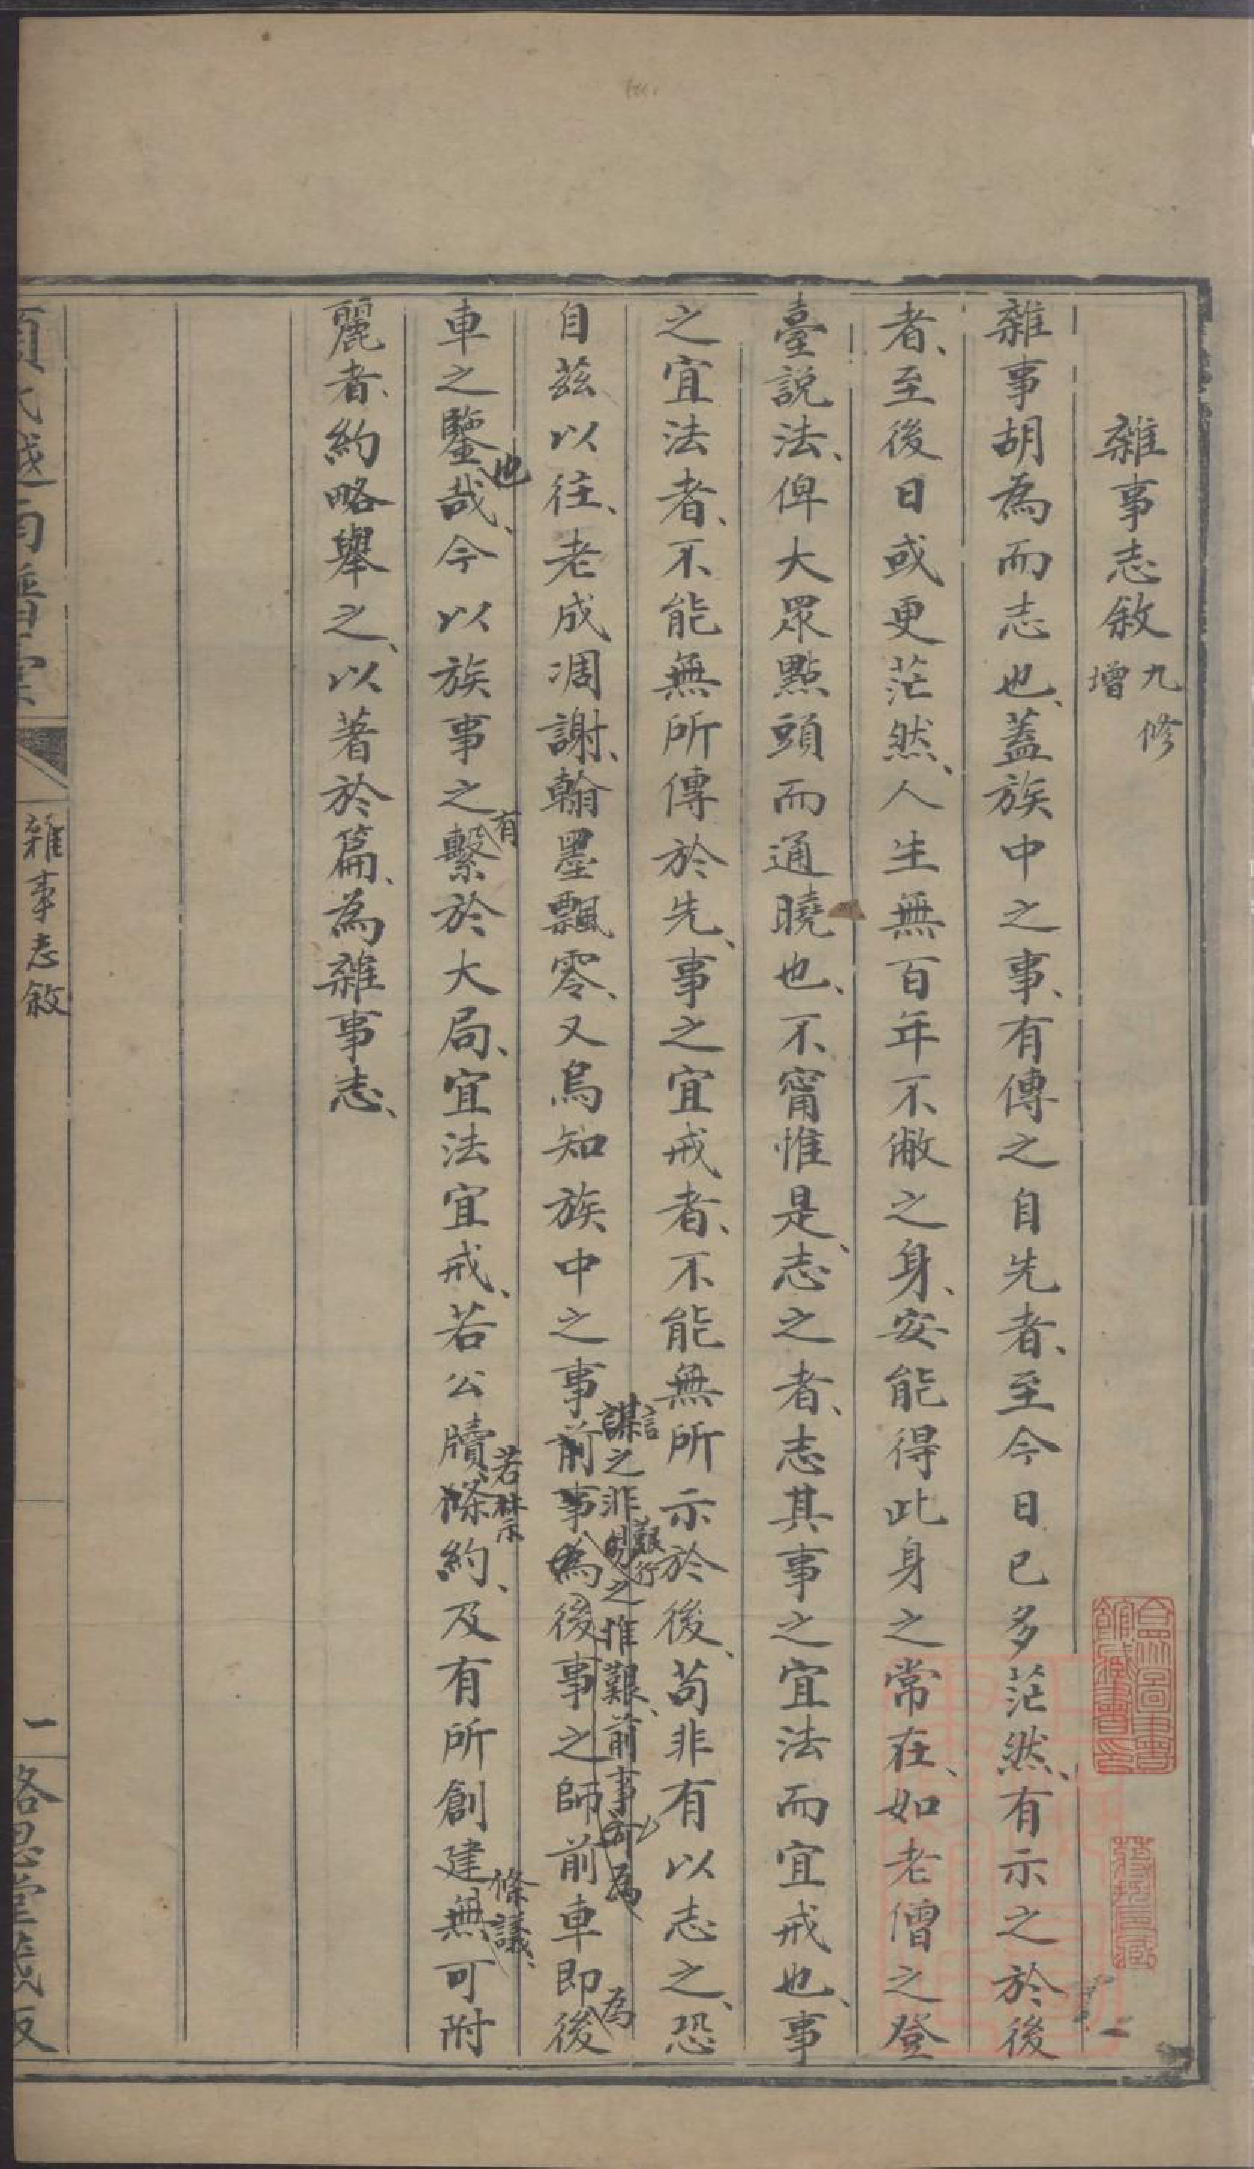 雜事志敘 九修增
雜事胡為而志也、蓋族中之事、有傳之自先者、至今日已多茫然、有示之於後
者、至後日或更茫然、人生無百年不敝之身、安能得此身之常在、如老僧之登
臺說法、俾大眾點頭而通曉也、不甯惟是、志之者、志其事之宜法而宜戒也、事
之宜法者、不能無所傳於先、事之宜戒者、不能無所示於後、苟非有以志之、恐
謀之非易之惟艱、前事
言
艱行
為
自茲以往、老成凋謝、翰墨飄零、又烏知族中之事前事為後事之師前車即後
為
也
有
若禁示
條議、
車之鑒哉、今以族事之繫於大局、宜法宜戒、若公牘條約、及有所創建無可附
麗者、約略舉之、以著於篇、為雜事志、
雜事志敘
一